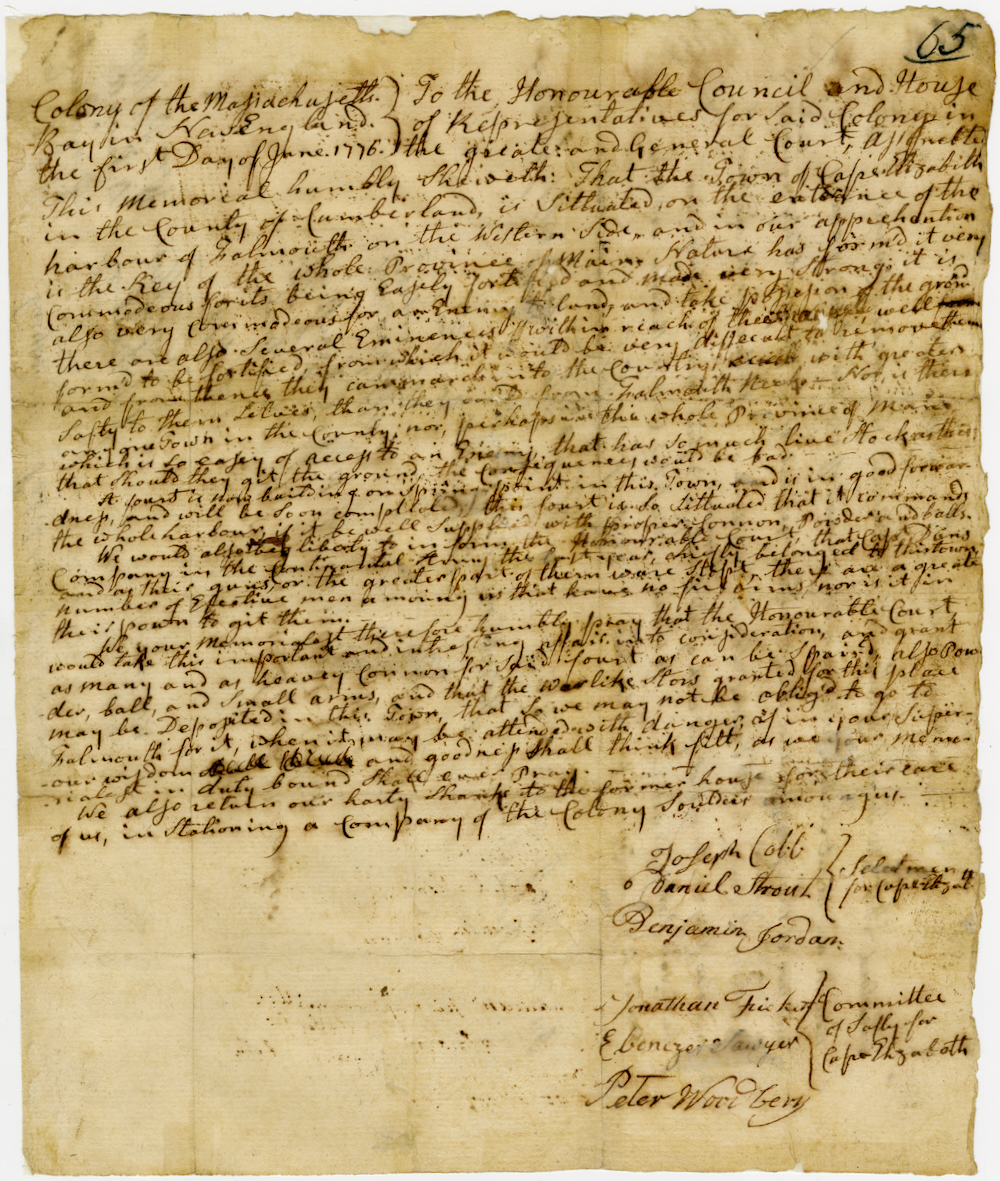 65
Colony of the Massachusetts } To the Honourable Council and House
Bay in New England. } of Representatives for said Colony in
the first Day of June. 1776. } the greate and General Court, Assembled
This Memorial humbly Sheweth: That the Town of Cape Elizabeth
in the County of Cumberland, is Sittuated on the enterence of the
harbour of Falmouth on the Western Side, and in our apprehention
is the Key of the whole Province of Main. Nature has form'd it very
Commodeous for its being Easely Fortified and made very Strong; it is
also very Commodeous for an Enemy to land, and take possesion of the grou
there are also Several Eminences within reach of the well
form'd to be fortified, from which it would be very difficult to remove them
and from thence they can march into the Country with greater
Safty to them Selves, than they could from Falmouth Neck. Nor is there
any one Town in the County, nor perhaps in the whole Province of Main
which is so easey of accept to an Enemy that has so much live Stock as this:
that should they git the ground, the Consequences would be bad
A fourt is now building on Spring point in this Town, and is in good forwar-
dness, and will be soon compleated, this fourt is so Sittuated that it commands
the whole harbour if it be well Supplied with proper Connon, Powder and balls.
We would also take liberty to inform the Honourable Court, that Capt Dans
Company in the Continantal Army the last year, chiefly belonged to this town
and as their guns, or the greater part of them ware Stopt, there are a greate
number of Efective men amoung us that have no fire arms, nor is it in
their power to git them.
We your Memorialast therefore humbly pray that the Honourable Court
would take this important and intresting affair into consideration, and grant
as many and as heavey Connon for said fourt as can be Spair'd, also Pow-
der, ball, and Small arms, and that the warlike Stors granted for this place
may be Deposited in this Town, that so we may not be obliged to go to
Falmouth for it, when it may be attended with danger, as in your Super-
our wisdom and goodness shall think fitt, as we your memo-
rialest in duty bound shall ever Pray.
We also return our harty thanks to the former house for their care
of us, in Stationing a Company of the Colony Soldiers amoung us.
Joseph Cobb
Daniel Strout } Selectmen for Cape Elizath
Benjamin Jordan
Jonathan Fickett } Committee
Ebenezer Sawyer of Safty for
Cape Elizabeth
Peter Woodbery